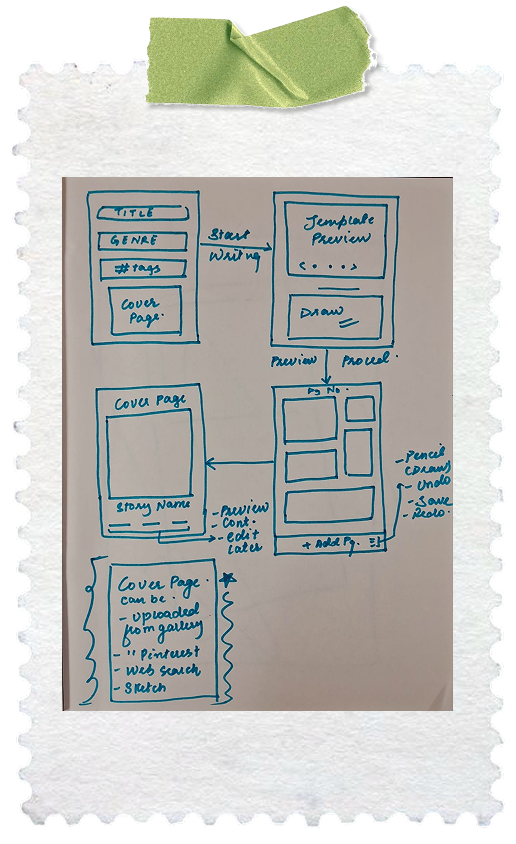 TITLE
GENRE
#tags
Cover
Page.
Start
Writing
Template
Preview
Draw
Preview Proceed.
Pg No.
+ Add Pg.
- Pencil
(Draw)
- Undo
- Save
- Redo.
Cover Page
Story Name
- Preview
- Cont.
- edit
later
Cover Page.
can be.
- Uploaded
from gallery
- " Pinterest
- Web search
- Sketch